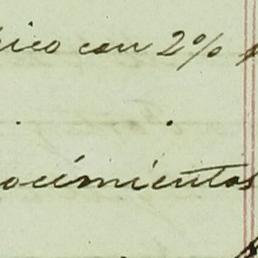 ico con 2%
ocimientos